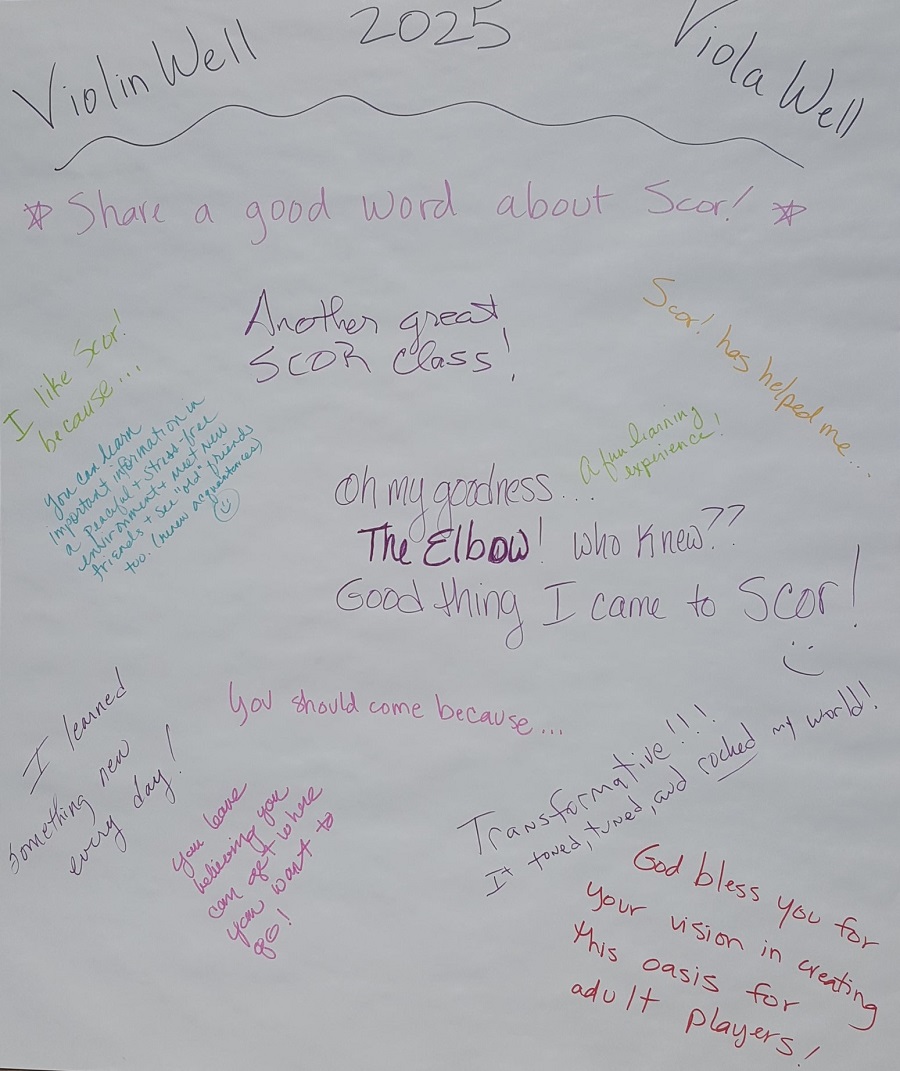 Violin Well 2025 Viola Well
☆ Share a good word about Scor! ☆
Another great
SCOR Class!
Scor! has helped me...
I like Scor!
because...
you can learn
important information in
a peaceful + stress-free
environment + meet new
friends + see "old" friends
too. (renew acquaintances)
A fun learning
experience!
Oh my goodness...
The Elbow! Who Knew??
Good thing I came to Scor!
I learned
something new
every day!
You should come because...
you leave
believing you
can get where
you want to
go!
Transformative!!!
It toned, tuned, and rocked my world!
God bless you for
your vision in creating
this oasis for
adult players!